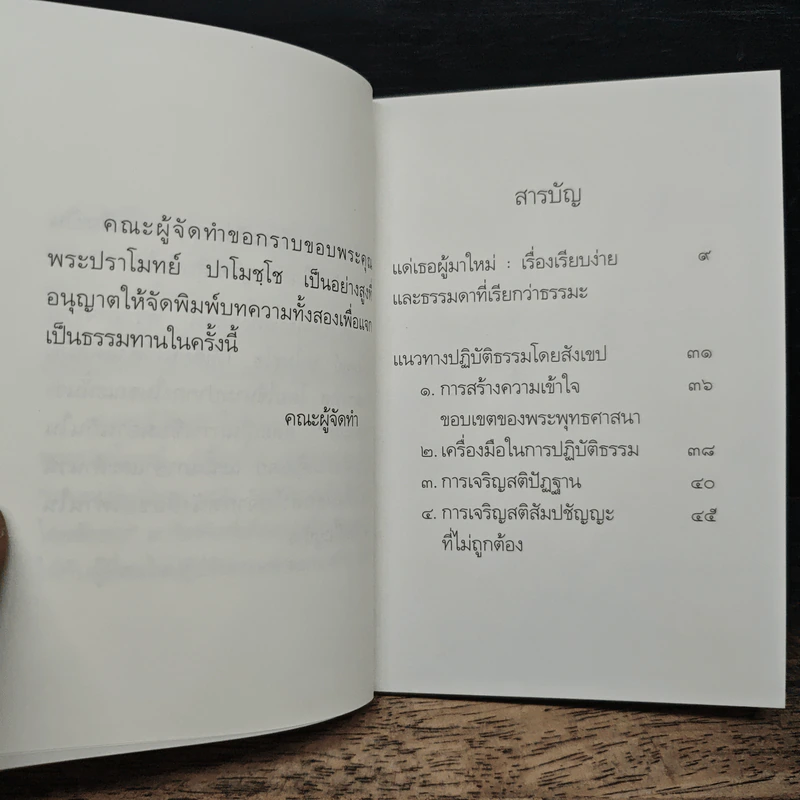 คณะผู้จัดทำขอกราบขอบพระคุณ
พระปราโมทย์ ปาโมชฺโช เป็นอย่างสูงที่
อนุญาตให้จัดพิมพ์บทความทั้งสองเพื่อแจก
เป็นธรรมทานในครั้งนี้
คณะผู้จัดทำ
สารบัญ
แด่เธอผู้มาใหม่ : เรื่องเรียบง่าย ๙
และธรรมดาที่เรียกว่าธรรมะ
แนวทางปฏิบัติธรรมโดยสังเขป ๓๑
๑. การสร้างความเข้าใจ ๓๖
ขอบเขตของพระพุทธศาสนา
๒. เครื่องมือในการปฏิบัติธรรม ๓๘
๓. การเจริญสติปัฏฐาน ๔๐
๔. การเจริญสติสัมปชัญญะ ๔๕
ที่ไม่ถูกต้อง